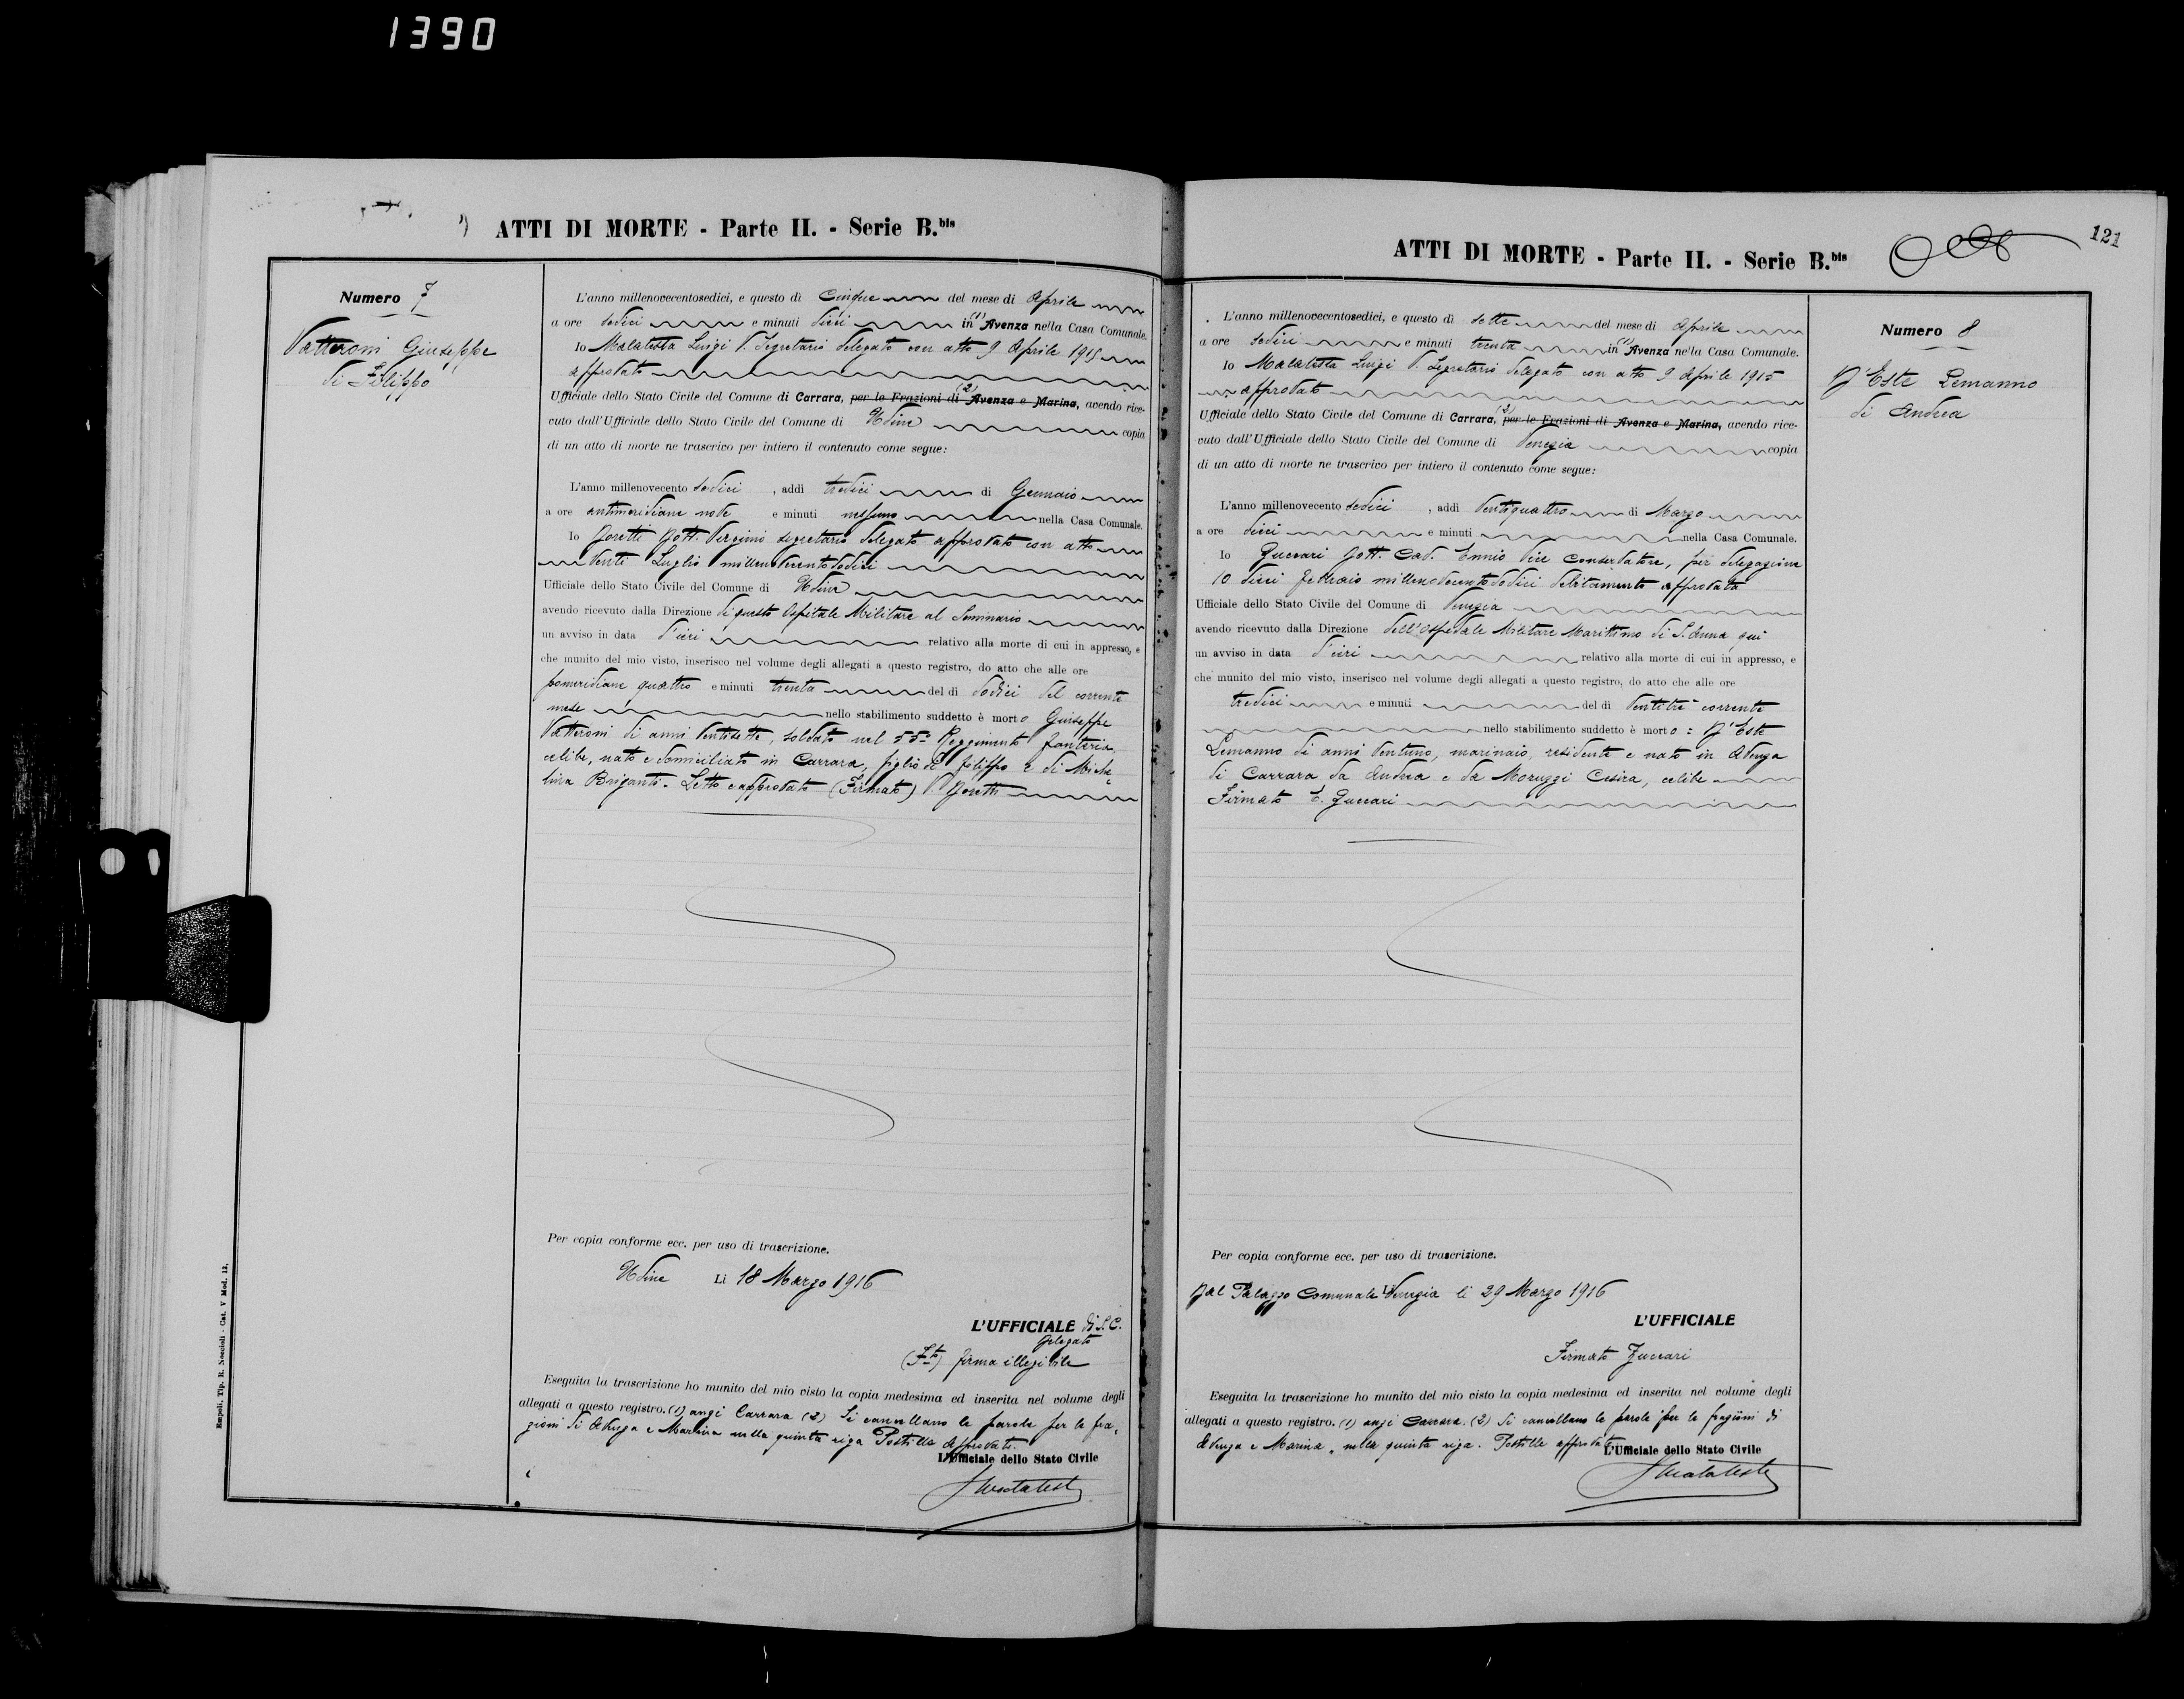 1390
ATTI DI MORTE - Parte II. - Serie B.bis
Numero 7
Vatteroni Giuseppe
di Filippo
L'anno millenovecentosedici, e questo dì Cinque del mese di Aprile
a ore sedici e minuti dieci in (1) Avenza nella Casa Comunale.
Io Malatesta Luigi V. Segretario delegato con atto 9 Aprile 1915
approvato
Ufficiale dello Stato Civile del Comune di Carrara, per le Frazioni di (2) Avenza e Marina, avendo rice-
vuto dall'Ufficiale dello Stato Civile del Comune di Udine copia
di un atto di morte ne trascrivo per intiero il contenuto come segue:
L'anno millenovecento sedici, addì tredici di Gennaio
a ore antimeridiane nove e minuti nessuno nella Casa Comunale.
Io Goretti Dott. Verginio segretario delegato approvato con atto
venti Luglio millenovecentododici
Ufficiale dello Stato Civile del Comune di Udine
avendo ricevuto dalla Direzione di questo Ospitale Militare al Seminario
un avviso in data d'ieri relativo alla morte di cui in appresso, e
che munito del mio visto, inserisco nel volume degli allegati a questo registro, do atto che alle ore
pomeridiane quattro e minuti trenta del dì dodici del corrente
mese nello stabilimento suddetto è morto Giuseppe
Vatteroni di anni ventisette, soldato nel 55° Reggimento fanteria,
celibe, nato e domiciliato in Carrara, figlio di Filippo e di Miche-
lina Briganti. Letto e approvato (Firmato) V. Goretti
Per copia conforme ecc. per uso di trascrizione.
Udine Li 18 Marzo 1916
L'UFFICIALE di S. C.
Delegato
(Fto) firma illegibile
Eseguita la trascrizione ho munito del mio visto la copia medesima ed inserita nel volume degli
allegati a questo registro. (1) anzi Carrara (2) Si cancellano le parole per le fra-
zioni di Avenza e Marina nella quinta riga Postille approvate.
L'Ufficiale dello Stato Civile
Malatesta
Empoli, Tip. R. Noccioli - Cat. V Mod. 12.
ATTI DI MORTE - Parte II. - Serie B.bis
121
Numero 8
D'Este Lemanno
di Andrea
L'anno millenovecentosedici, e questo dì sette del mese di Aprile
a ore sedici e minuti trenta in (1) Avenza nella Casa Comunale.
Io Malatesta Luigi V. Segretario delegato con atto 9 Aprile 1915
approvato
Ufficiale dello Stato Civile del Comune di Carrara, (2) per le Frazioni di Avenza e Marina, avendo rice-
vuto dall'Ufficiale dello Stato Civile del Comune di Venezia copia
di un atto di morte ne trascrivo per intiero il contenuto come segue:
L'anno millenovecento sedici, addì ventiquattro di Marzo
a ore dieci e minuti nella Casa Comunale.
Io Zuccari Dott. Cav. Ennio Vice Conservatore, per delegazione
10 dieci Febbraio millenovecentododici debitamente approvata
Ufficiale dello Stato Civile del Comune di Venezia
avendo ricevuto dalla Direzione dell'Ospedale Militare Marittimo di S. Anna, qui
un avviso in data d'ieri relativo alla morte di cui in appresso, e
che munito del mio visto, inserisco nel volume degli allegati a questo registro, do atto che alle ore
tredici e minuti del dì ventitrè corrente
nello stabilimento suddetto è morto: D'Este
Lemanno di anni ventuno, marinaio, residente e nato in Avenza
di Carrara da Andrea e da Moruzzi Cesira, celibe
Firmato E. Zuccari
Per copia conforme ecc. per uso di trascrizione.
Dal Palazzo Comunale Venezia li 29 Marzo 1916
L'UFFICIALE
Firmato Zuccari
Eseguita la trascrizione ho munito del mio visto la copia medesima ed inserita nel volume degli
allegati a questo registro. (1) anzi Carrara. (2) Si cancellano le parole "per le frazioni di
Avenza e Marina" nella quinta riga. Postille approvate
L'Ufficiale dello Stato Civile
Malatesta